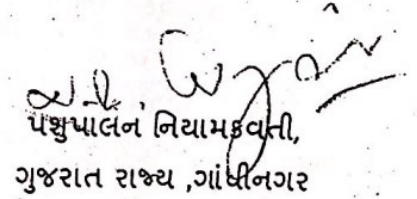 પશુપાલન નિયામકવતી,
ગુજરાત રાજ્ય ,ગાંધીનગર